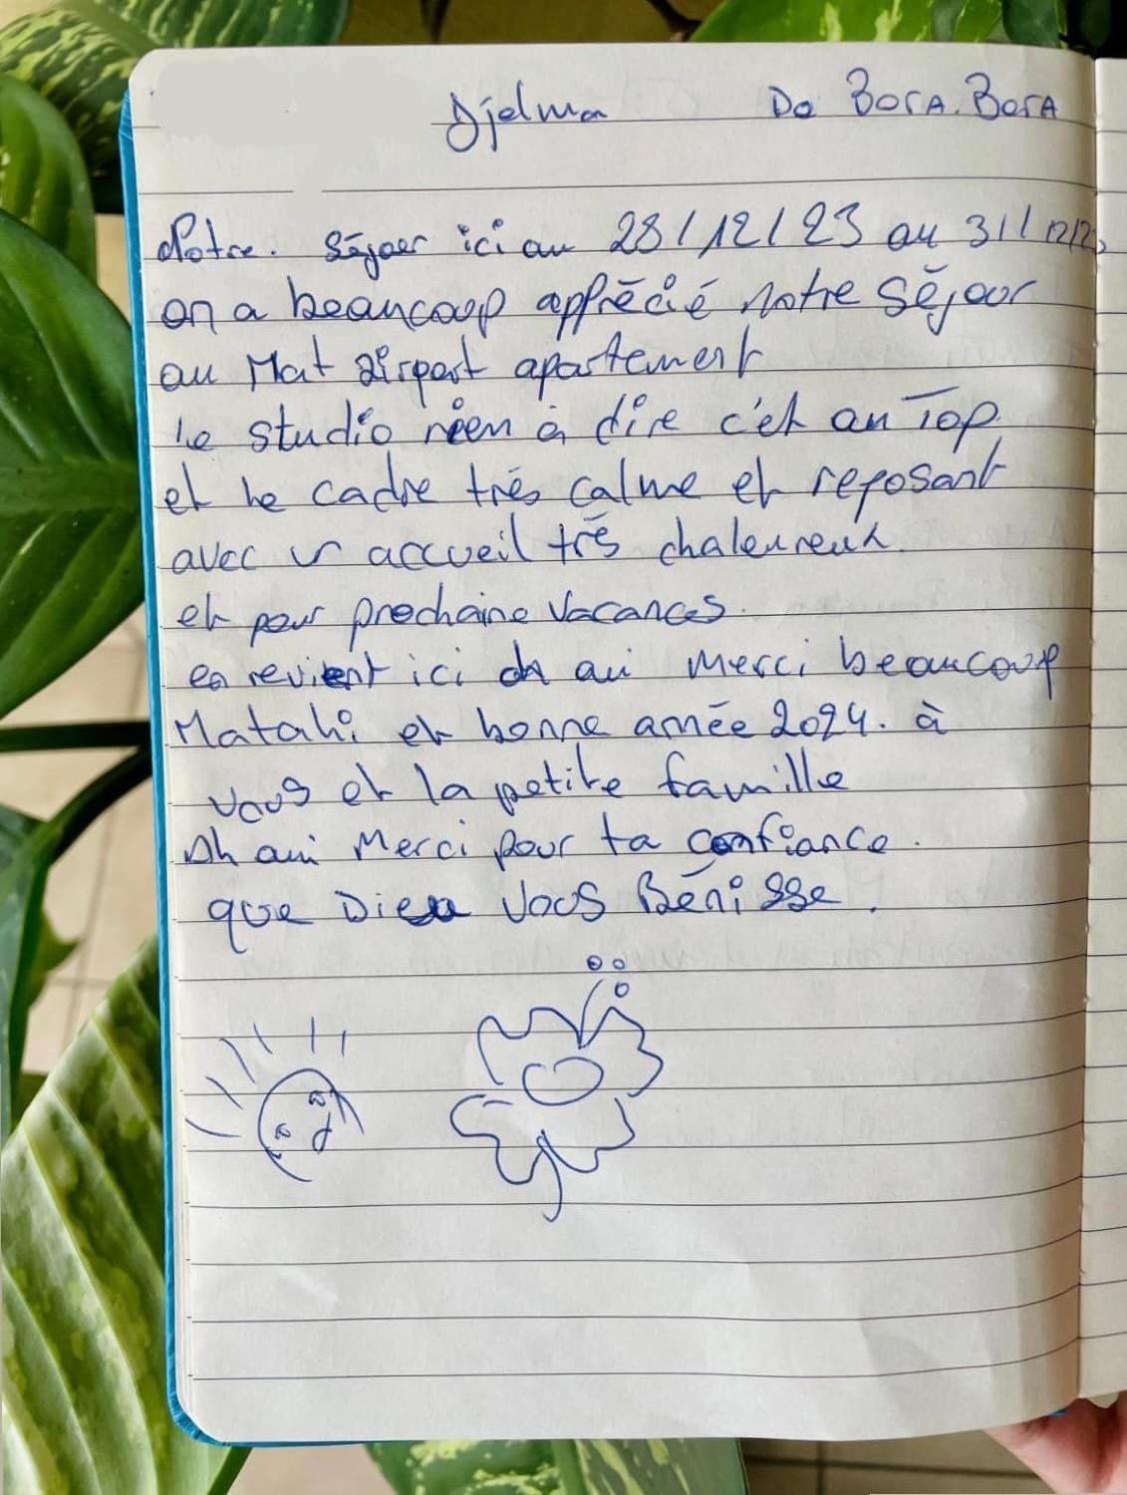 Djelma De BorA.BorA
Notre. Séjour ici au 28/12/23 au 31/12/23
on a beaucoup apprécié notre Séjour
au Mat airport apartement
le studio rien à dire c'et au Top
et le cadre très calme et reposant
avec un accueil très chaleureux.
et pour prochaine Vacances.
en revient ici oh aui Merci beaucoup
Matahi et bonne année 2024. à
vous et la petite famille
Oh aui Merci pour ta confiance.
que Dieu Vous Bénisse.